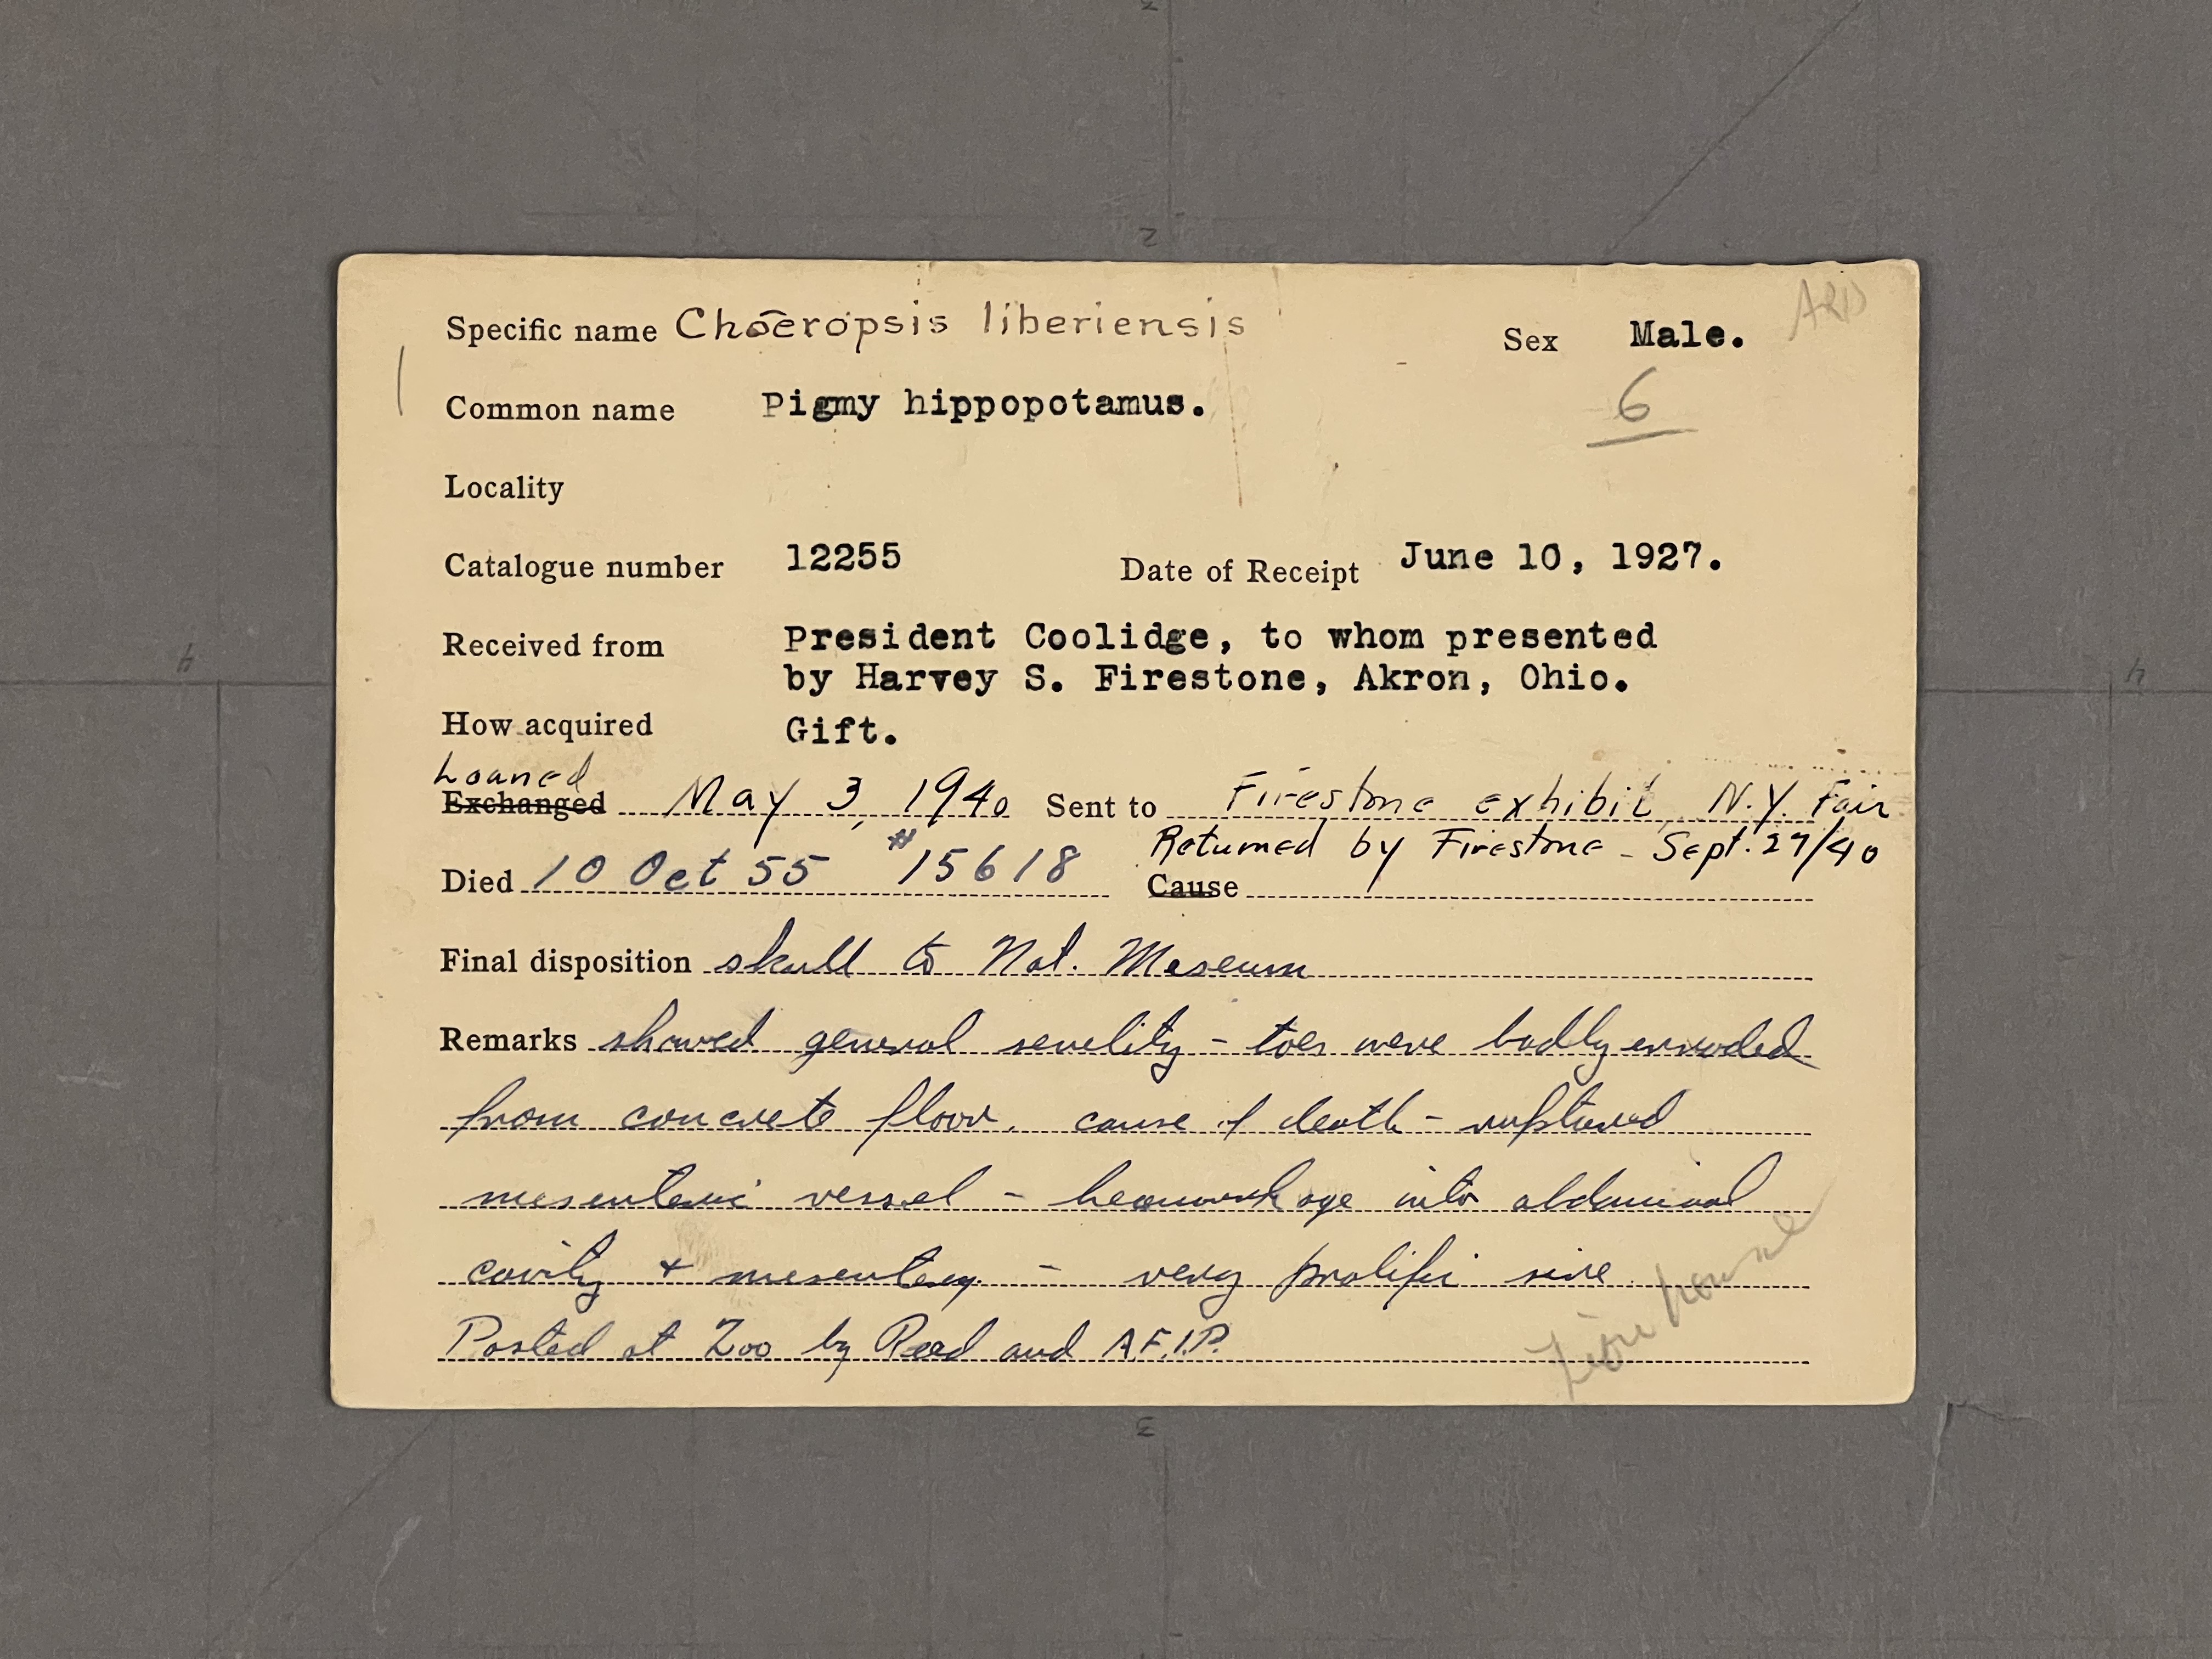 Specific name Choeropsis liberiensis Sex Male.
6
Common name Pigmy hippopotamus.
Locality
Catalogue number 12255 Date of Receipt June 10, 1927.
Received from President Coolidge, to whom presented
by Harvey S. Firestone, Akron, Ohio.
How acquired Gift.
Loaned
Exchanged May 3, 1940 Sent to Firestone exhibit, N.Y. Fair
Returned by Firestone - Sept. 27/40
Died 10 Oct 55 #15618 Cause
Final disposition skull to Nat. Museum
Remarks showed general senelity - toes were badly erroded
from concrete floor. cause of death - ruptured
mesenteric vessel - hemorrhage into abdominal
cavity + mesentery - very prolific sire
Posted at Zoo by Reed and A.F.I.P.
Lion house